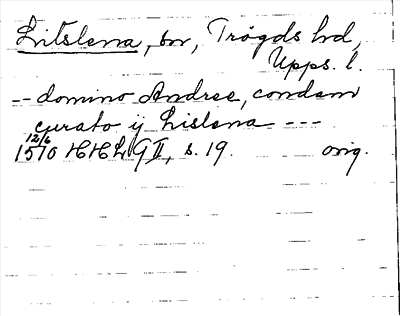 Litslena, sn, Trögds hd,
Upps. l.
-- domino Andree, condam
curato ij Lislena ---
12/6
1510 HHLG II, s. 19. orig.